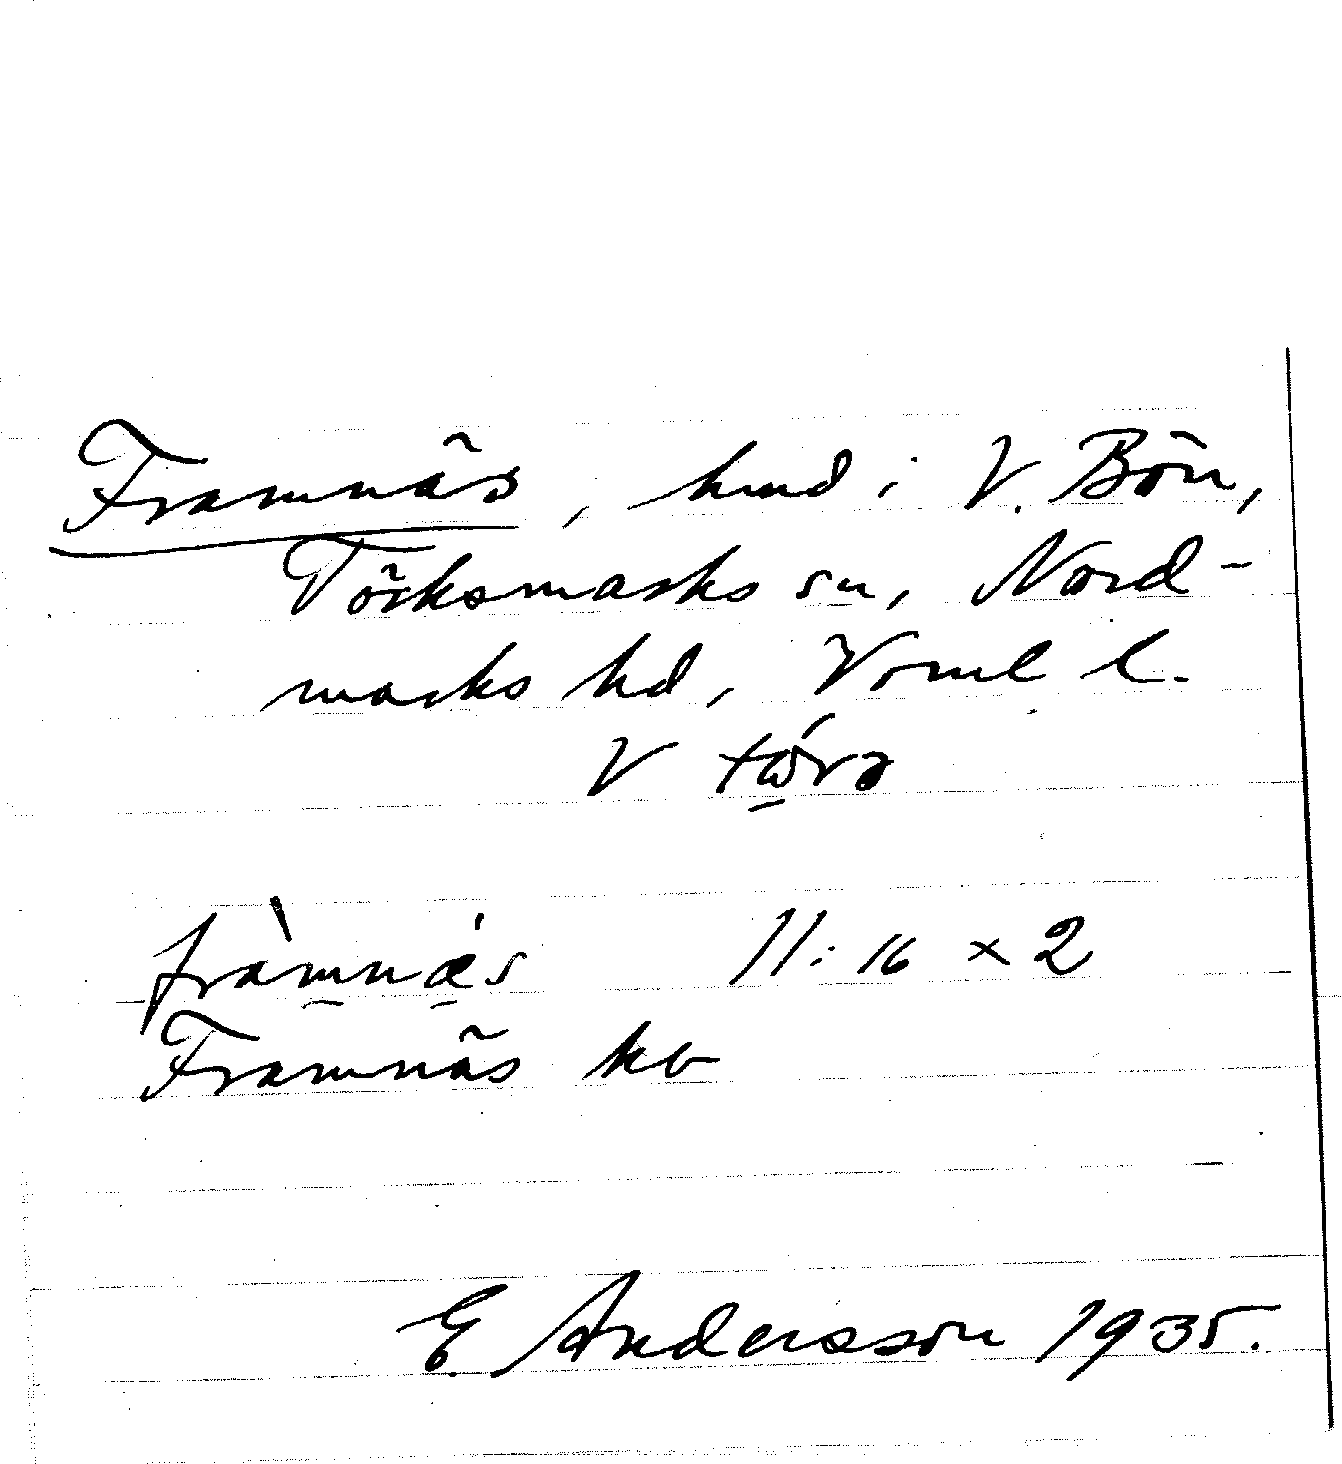 Framnäs, hmd i V. Bön,
Töcksmarks sn, Nord-
marks hd, Vrml l.
V
fràmnæ´s 11:16 × 2
Framnäs kb
E Andersson 1935.